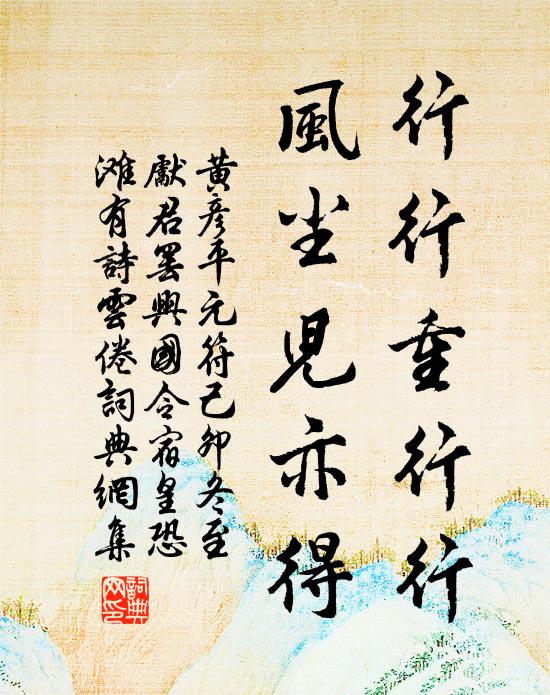 行行重行行
風塵兒亦得
黄彦平元符己卯冬至
獻君罷興國令宿皇恐
滩有詩雲倦詞典網集
詞典
网印